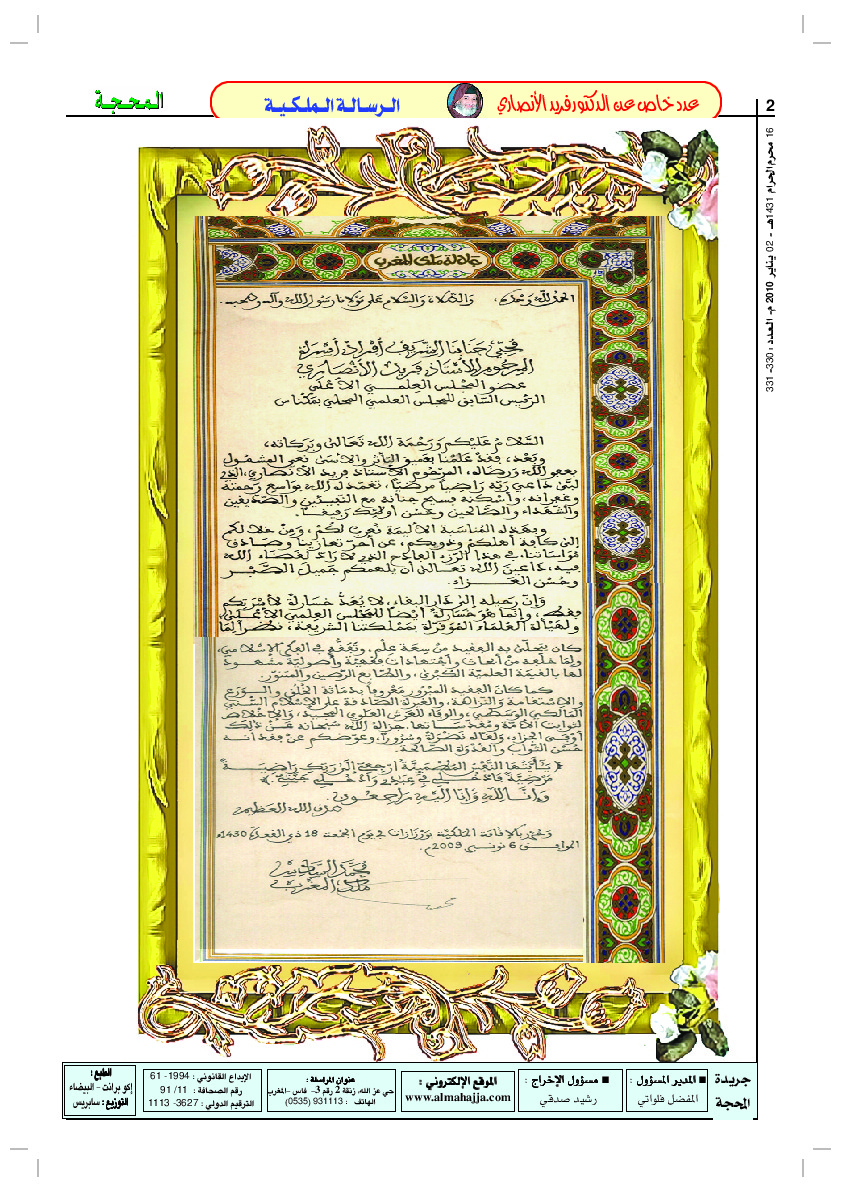 2
عدد خاص عن الدكتور فريد الأنصاري
الرسالة الملكية
المحجة
16 محرم الحرام 1431هـ - 02 يناير 2010 م- العدد : 330- 331
جلالة ملك المغرب
الحمد لله وحده، والصلاة والسلام على مولانا رسول الله وآله وصحبه.
محبي جنابنا الشريف أفراد أسرة
المرحوم الأستاذ فريد الأنصاري
عضو المجلس العلمي الأعلى
الرئيس السابق للمجلس العلمي المحلي بمكناس
السلام عليكم ورحمة الله تعالى وبركاته،
وبعد، فقد علمنا بعميق التأثر والأسى نعي المشمول
بعفو الله ورضاه، المرحوم الأستاذ فريد الأنصاري، الذي
لبى داعي ربه راضيا مرضيا، تغمده الله بواسع رحمته
وغفرانه، وأسكنه فسيح جنانه مع النبيئين والصديقين
والشهداء والصالحين وحسن أولئك رفيقا.
وبهذه المناسبة الأليمة نعرب لكم، ومن خلالكم
إلى كافة أهلكم وذويكم، عن أحر تعازينا وصادق
مواساتنا في هذا الرزء الفادح الذي لا راد لقضاء الله
فيه، داعين الله تعالى أن يلهمكم جميل الصبر
وحسن العزاء.
وإن رحيله إلى دار البقاء، لا يعد خسارة لأسرتكم
فقط، وإنما هو خسارة أيضا للمجلس العلمي الأعلى،
ولهيأة العلماء الموقرة بمملكتنا الشريفة، نظرا لما
كان يتحلى به الفقيد من سعة علم، وتفقه في الفكر الإسلامي،
ولما خلفه من أبحاث واجتهادات فقهية وأصولية مشهود
لها بالقيمة العلمية الكبرى، والطابع الرصين والمتنور.
كما كان الفقيد المبرور معروفا بدماثة الخلق والورع
والاستقامة والنزاهة، والغيرة الصادقة على الإسلام السني
المالكي الوسطي، والوفاء للعرش العلوي المجيد، والإخلاص
لثوابت الأمة ومقدساتها. جزاه الله سبحانه عن ذلك
أوفى الجزاء، ولقاه نضرة وسرورا، وعوضكم عن فقدانه
حسن الثواب والقدوة الصالحة.
﴿يا أيتها النفس المطمئنة ارجعي إلى ربك راضية
مرضية فادخلي في عبادي وادخلي جنتي﴾
وإنا لله وإنا إليه راجعون.
صدق الله العظيم
وحرر بالإقامة الملكية بورزازات في يوم الجمعة 18 ذي القعدة 1430هـ
الموافق 6 نونبر 2009م.
محمد السادس
ملك المغرب
جريدة
المحجة
■ المدير المسؤول :
المفضل فلواتي
■ مسؤول الإخراج :
رشيد صدقي
الموقع الإلكتروني :
www.almahajja.com
عنوان المراسلة :
حي عز الله، زنقة 2 رقم 3- فاس -المغرب
الهاتف : 931113 (0535)
الإيداع القانوني : 1994- 61
رقم الصحافة : 11/ 91
الترقيم الدولي : 3627- 1113
الطبع :
إكو برانت - البيضاء
التوزيع : سابريس